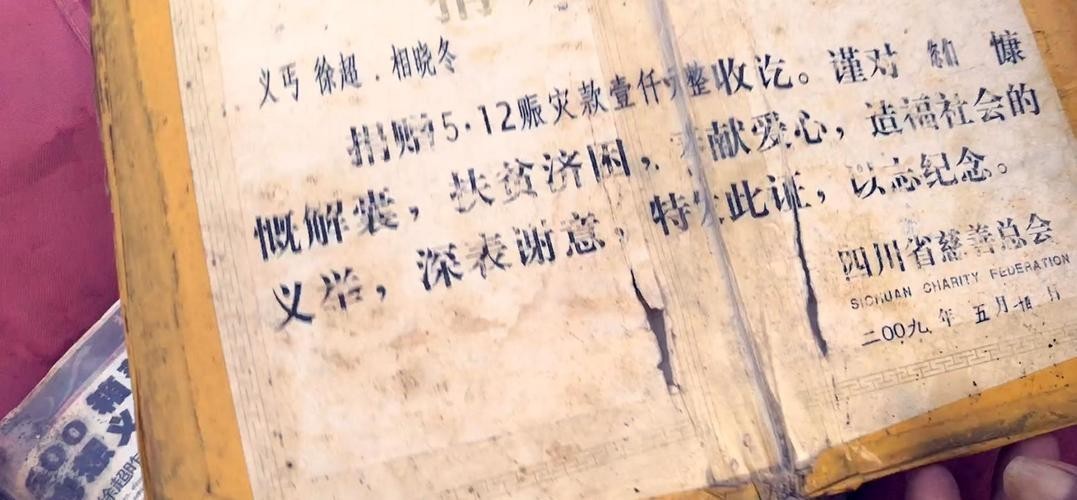 捐
义丐 徐超．相晓冬
捐赠5·12赈灾款壹仟元整收讫。谨对 慷
慨解囊，扶贫济困，奉献爱心，造福社会的
义举，深表谢意，特发此证，以志纪念。
四川省慈善总会
SICHUAN CHARITY FEDERATION
二00九 年 五月 月